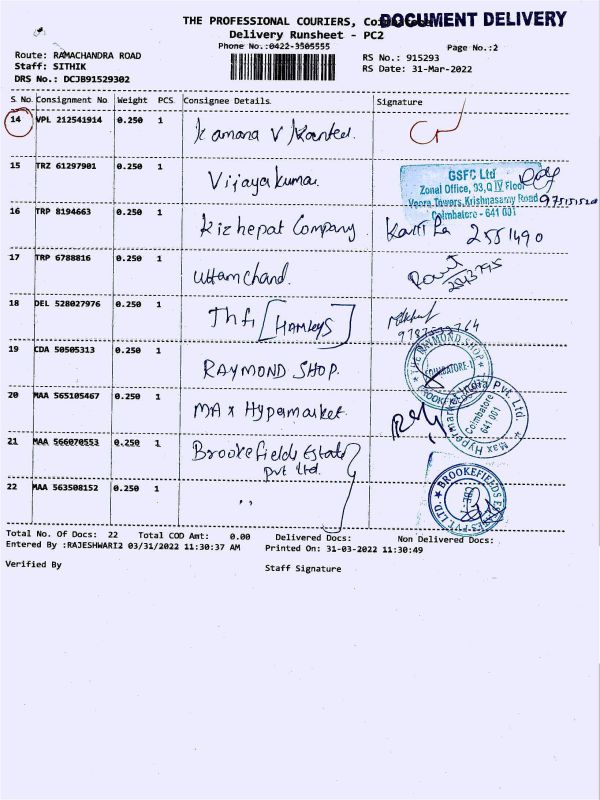 THE PROFESSIONAL COURIERS,
DOCUMENT DELIVERY
Delivery Runsheet - PC2
Phone No.:0422-3505555
Page No.:2
Route: RAMACHANDRA ROAD
RS No.: 915293
Staff: SITHIK
RS Date: 31-Mar-2022
DRS No.: DCJB91529302
S No. Consignment No Weight PCS Consignee Details Signature
14 VPL 212541914 0.250 1 V
15 TRZ 61297901 0.250 1 Vijayakumar
GSFC Ltd
Zonal Office, 93,Q IV Floor
Veera Towers, Krishnasamy Road
Coimbatore - 641 001
16 TRP 8194663 0.250 1 Kizhepat Company 2551490
17 TRP 6788816 0.250 1 Uttamchand.
18 DEL 528027976 0.250 1 Thfi [HAMleyS]
19 CDA 50505313 0.250 1 RAYMOND SHOP.
THE RAYMOND SHOP
COIMBATORE-1
20 MAA 565105467 0.250 1 MAX Hypermarket.
Max Hypermarket India Pvt. Ltd
Coimbatore
641 001
21 MAA 566070553 0.250 1 Brookefields Estate
Pvt Ltd.
22 MAA 563508152 0.250 1 ,,
BROOKEFIELDS PVT.LTD.
Total No. Of Docs: 22 Total COD Amt: 0.00 Delivered Docs: Non Delivered Docs:
Entered By :RAJESHWARI2 03/31/2022 11:30:37 AM Printed On: 31-03-2022 11:30:49
Verified By
Staff Signature